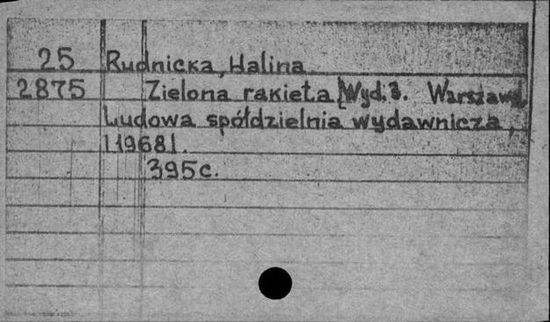 25 Rudnicka, Halina
2875 Zielona rakieta [Wyd. 3. Warszawa]
Ludowa spółdzielnia wydawnicza,
[1968].
395c.